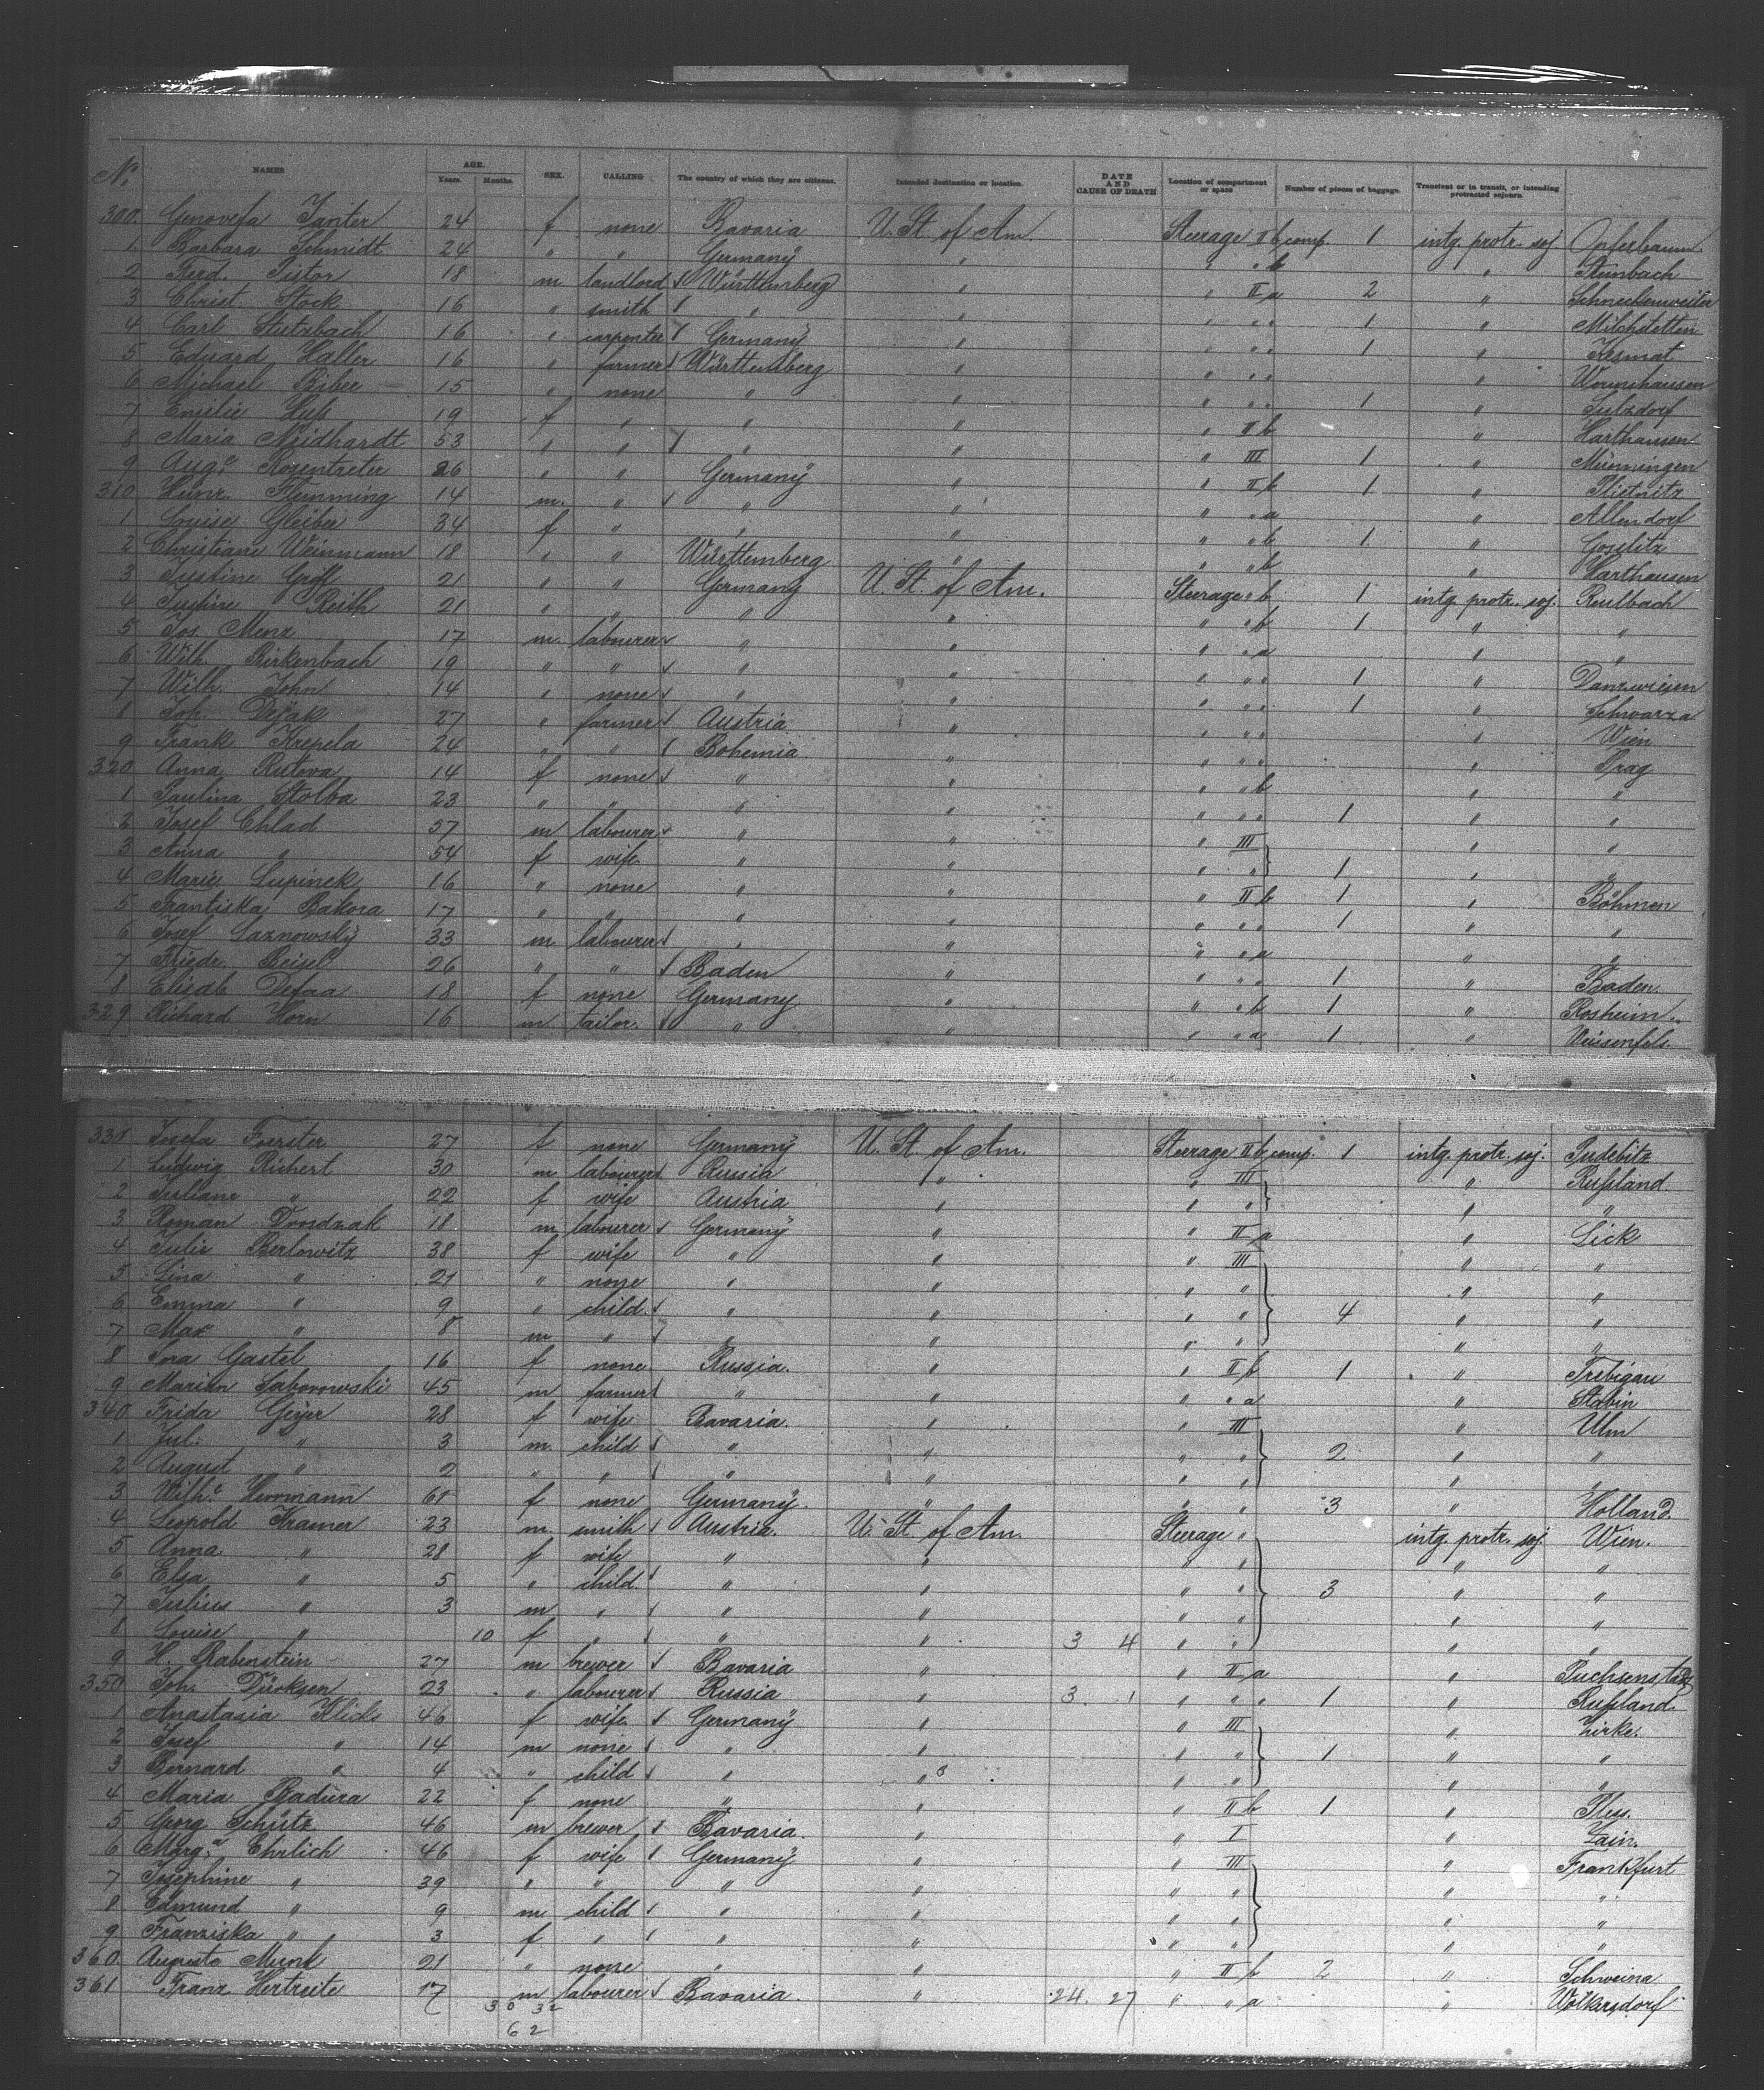 No. NAMES AGE. Years. Months. SEX. CALLING The country of which they are citizens. Intended destination or location. DATE AND CAUSE OF DEATH Location of compartment or space Number of pieces of baggage. Transient or in transit, or intending protracted sojourn.
300. Genovefa 24 f none Bavaria U. St. of Am. Steerage II b comp. 1 intg. protr. soj. Opferbaum
1 Barbara Schmidt 24 " " Germany " " " b " Steinbach
2 Ferd. Pistor 18 m landlord Württemberg " " II a 2 "
3 Christ. Stock 16 " smith " " " " " 1 " Milchstetten
4 Carl Stutzbach 16 " carpenter Germany " " " " 1 "
5 Eduard Haller 16 " farmer Württemberg " " " " "
6 Michael Biber 15 " none " " " " " 1 " Sulzdorf
7 Emilie Huß 19 f " " " " II b " Harthausen
8 Maria Neidhardt 53 " " " " " III 1 "
9 Auge. Rosentreter 26 " " Germany " " II b 1 "
310 Heinr. Flemming 14 m. " " " " " a " Allendorf
1 Louise Gleiber 34 f " " " " " b 1 " Goselitz
2 Christiane Weinmann 18 " " Württemberg " " " b " Harthausen
3 Justine Gröll 21 " " Germany U. St. of Am. Steerage " b 1 intg. protr. soj. Reulbach
4 Justine Reith 21 " " " " " " b 1 " "
5 Jos. Menz 17 m. labourer " " " " a " "
6 Wilh. Birkenbach 19 " " " " " " " 1 " Danzwiesen
7 Wilh. John 14 " none " " " " " 1 " Schwarza
8 Joh. Dejak 27 " farmer Austria " " " " " Wien
9 Frank Krepela 24 " " Bohemia " " " " " Prag
320 Anna Rutova 14 f none " " " " b " "
1 Paulina Stolba 23 " " " " " " " 1 " "
2 Josef Chlad 57 m labourer " " " III " "
3 Anna " 54 f wife " " " " 1 " "
4 Marie Lupinek 16 " none " " " II b 1 " Böhmen
5 Frantiska Bakora 17 " " " " " " " 1 " "
6 Josef Laznowský 33 m labourer " " " " a " "
7 Friedr. Beisel 26 " " Baden " " " " 1 " Baden.
8 Elisab. Defaa 18 f none Germany " " " b 1 " Rosheim
329 Richard Horn 16 m tailor. " " " " a 1 " Weissenfels.
330 Josefa Foerster 27 f none Germany U. St. of Am. Steerage II b comp. 1 intg. protr. soj. Pudebitz
1 Ludwig Richert 30 m labourer Russia " " III " Rußland.
2 Juliane " 22 f wife Austria " " " " "
3 Roman 18 m labourer Germany " " II a " Lick
4 Julie Berlowitz 38 f wife " " " III " "
5 Lina " 21 " none " " " " " "
6 Emma " 9 " child " " " " 4 " "
7 Max " 8 m " " " " " " "
8 Ina Gastel 16 f none Russia. " " II b 1 " Trebigau
9 Marian Saborowski 45 m farmer " " " " a " Stabin
340 Frida Geyer 28 f wife Bavaria. " " III " Ulm
1 Jul. " 3 m. child " " " " 2 " "
2 August " 2 " " " " " " " "
3 Wilh.e Herrmann 61 f none Germany. " " " 3 " Holland.
4 Leopold Kramer 23 m. smith Austria. U. St. of Am. Steerage " intg. protr. soj. Wien.
5 Anna " 28 f wife " " " " " "
6 Elsa " 5 " child " " " " 3 " "
7 Julius " 3 m " " " " " " "
8 Louise " 10 f " " " 3 4 " " " "
9 H. Rabenstein 27 m brewer Bavaria " " II a "
350 Joh. Dürksen 23 " labourer Russia " 3. 1 " " " 1 " Rußland.
1 Anastasia Klids 46 f wife Germany " " III " Zirke.
2 Josef " 14 m none " " " " 1 " "
3 Bernard " 4 " child " " " " " "
4 Maria Badura 22 f none " " " II b 1 " Pless.
5 Georg Schütz 46 m brewer Bavaria. " " I " Zain.
6 Marg.a Ehrlich 46 f wife Germany " " III " Frankfurt
7 Josephine " 39 " " " " " " " "
8 Edmund " 9 m child " " " " " "
9 Franziska " 3 f " " " " " " "
360. Auguste Munk 21 " none " " " II b 2 " Schweina
361 Franz Hertreite 17 m labourer Bavaria. " 24. 27 " " a " Wolkersdorf
30 32
62